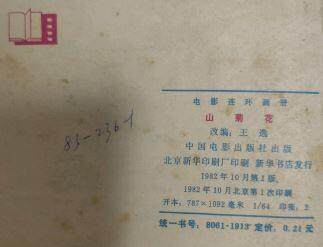 83-236-1
电影连环画册
山菊花
改编：王逸
中国电影出版社出版
北京新华印刷厂印刷 新华书店发行
1982年10月第1版
1982年10月北京第1次印刷
开本：787×1092毫米 1/64 印张：2
统一书号：8061·1913 定价：0.21元